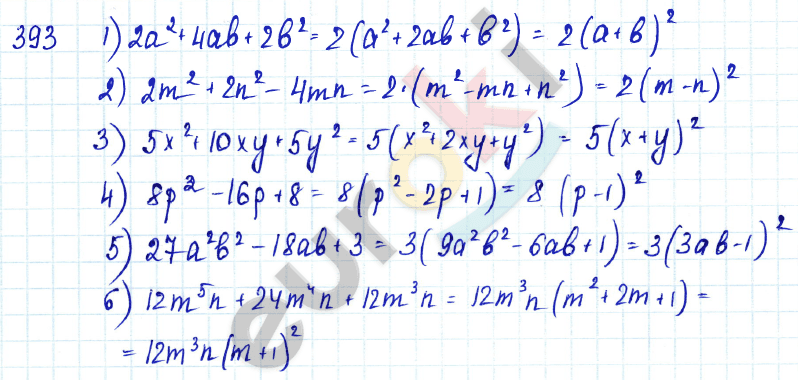 393 1) 2a² + 4ab + 2b² = 2(a² + 2ab + b²) = 2(a + b)²
2) 2m² + 2n² - 4mn = 2·(m² - mn + n²) = 2(m - n)²
3) 5x² + 10xy + 5y² = 5(x² + 2xy + y²) = 5(x + y)²
4) 8p² - 16p + 8 = 8(p² - 2p + 1) = 8 (p - 1)²
5) 27a²b² - 18ab + 3 = 3(9a²b² - 6ab + 1) = 3(3ab - 1)²
6) 12m⁵n + 24m⁴n + 12m³n = 12m³n(m² + 2m + 1) =
= 12m³n(m + 1)²
euroki